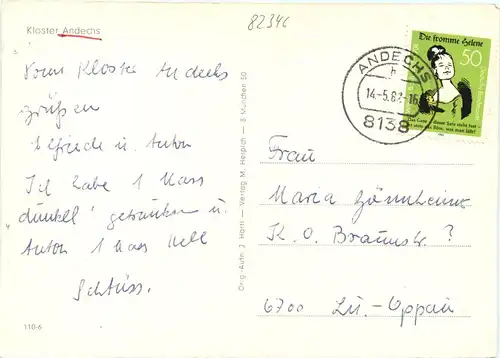 82346
Kloster Andechs
Vom Kloster Andechs
grüßen
Elfriede u. Anton
Ich habe 1 Mass
"dunkel" getrunken u.
Anton 1 Mass hell
Schtüss.
110-6
Orig.-Aufn. J. Hartl — Verlag M. Herpich — 8 München 50
ANDECHS
h
14.-5.82-16
8138
Die fromme Helene
50
Das Gute - dieser Satz steht fest -
ist stets das Böse, was man läßt!
Frau
Maria
K. O. Braunstr. ?
6700 Lu.-Oppau